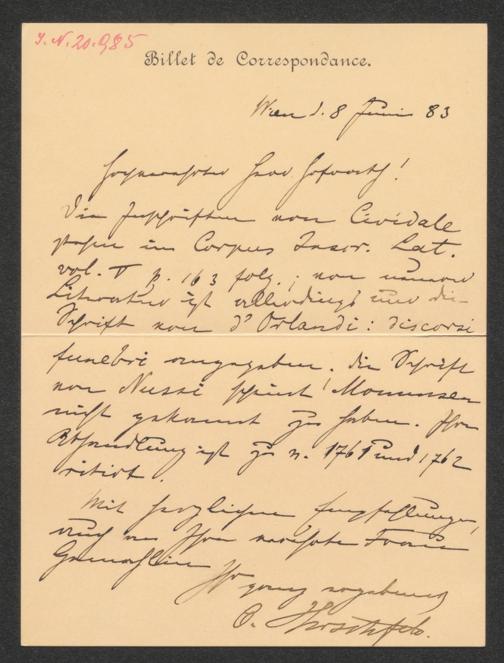 I. N. 20.985
Billet de Correspondance.
Wien d. 8 Juni 83
Hochverehrter Herr Hofrath!
Die Inschriften von Cividale
stehen im Corpus Inscr. Lat.
vol. V p. 163 folg.; von neuerer
Literatur ist allerdings nur die
Schrift von d'Orlandi: discorsi
funebri angegeben. Die Schrift
von Nussi scheint Mommsen
nicht gekannt zu haben. Ihre
Abhandlung ist zu n. 1761 und 1762
citirt.
Mit herzlichen Empfehlungen,
auch an Ihre verehrte Frau
Gemahlin
Ihr ganz ergebener
O. Hirschfeld.